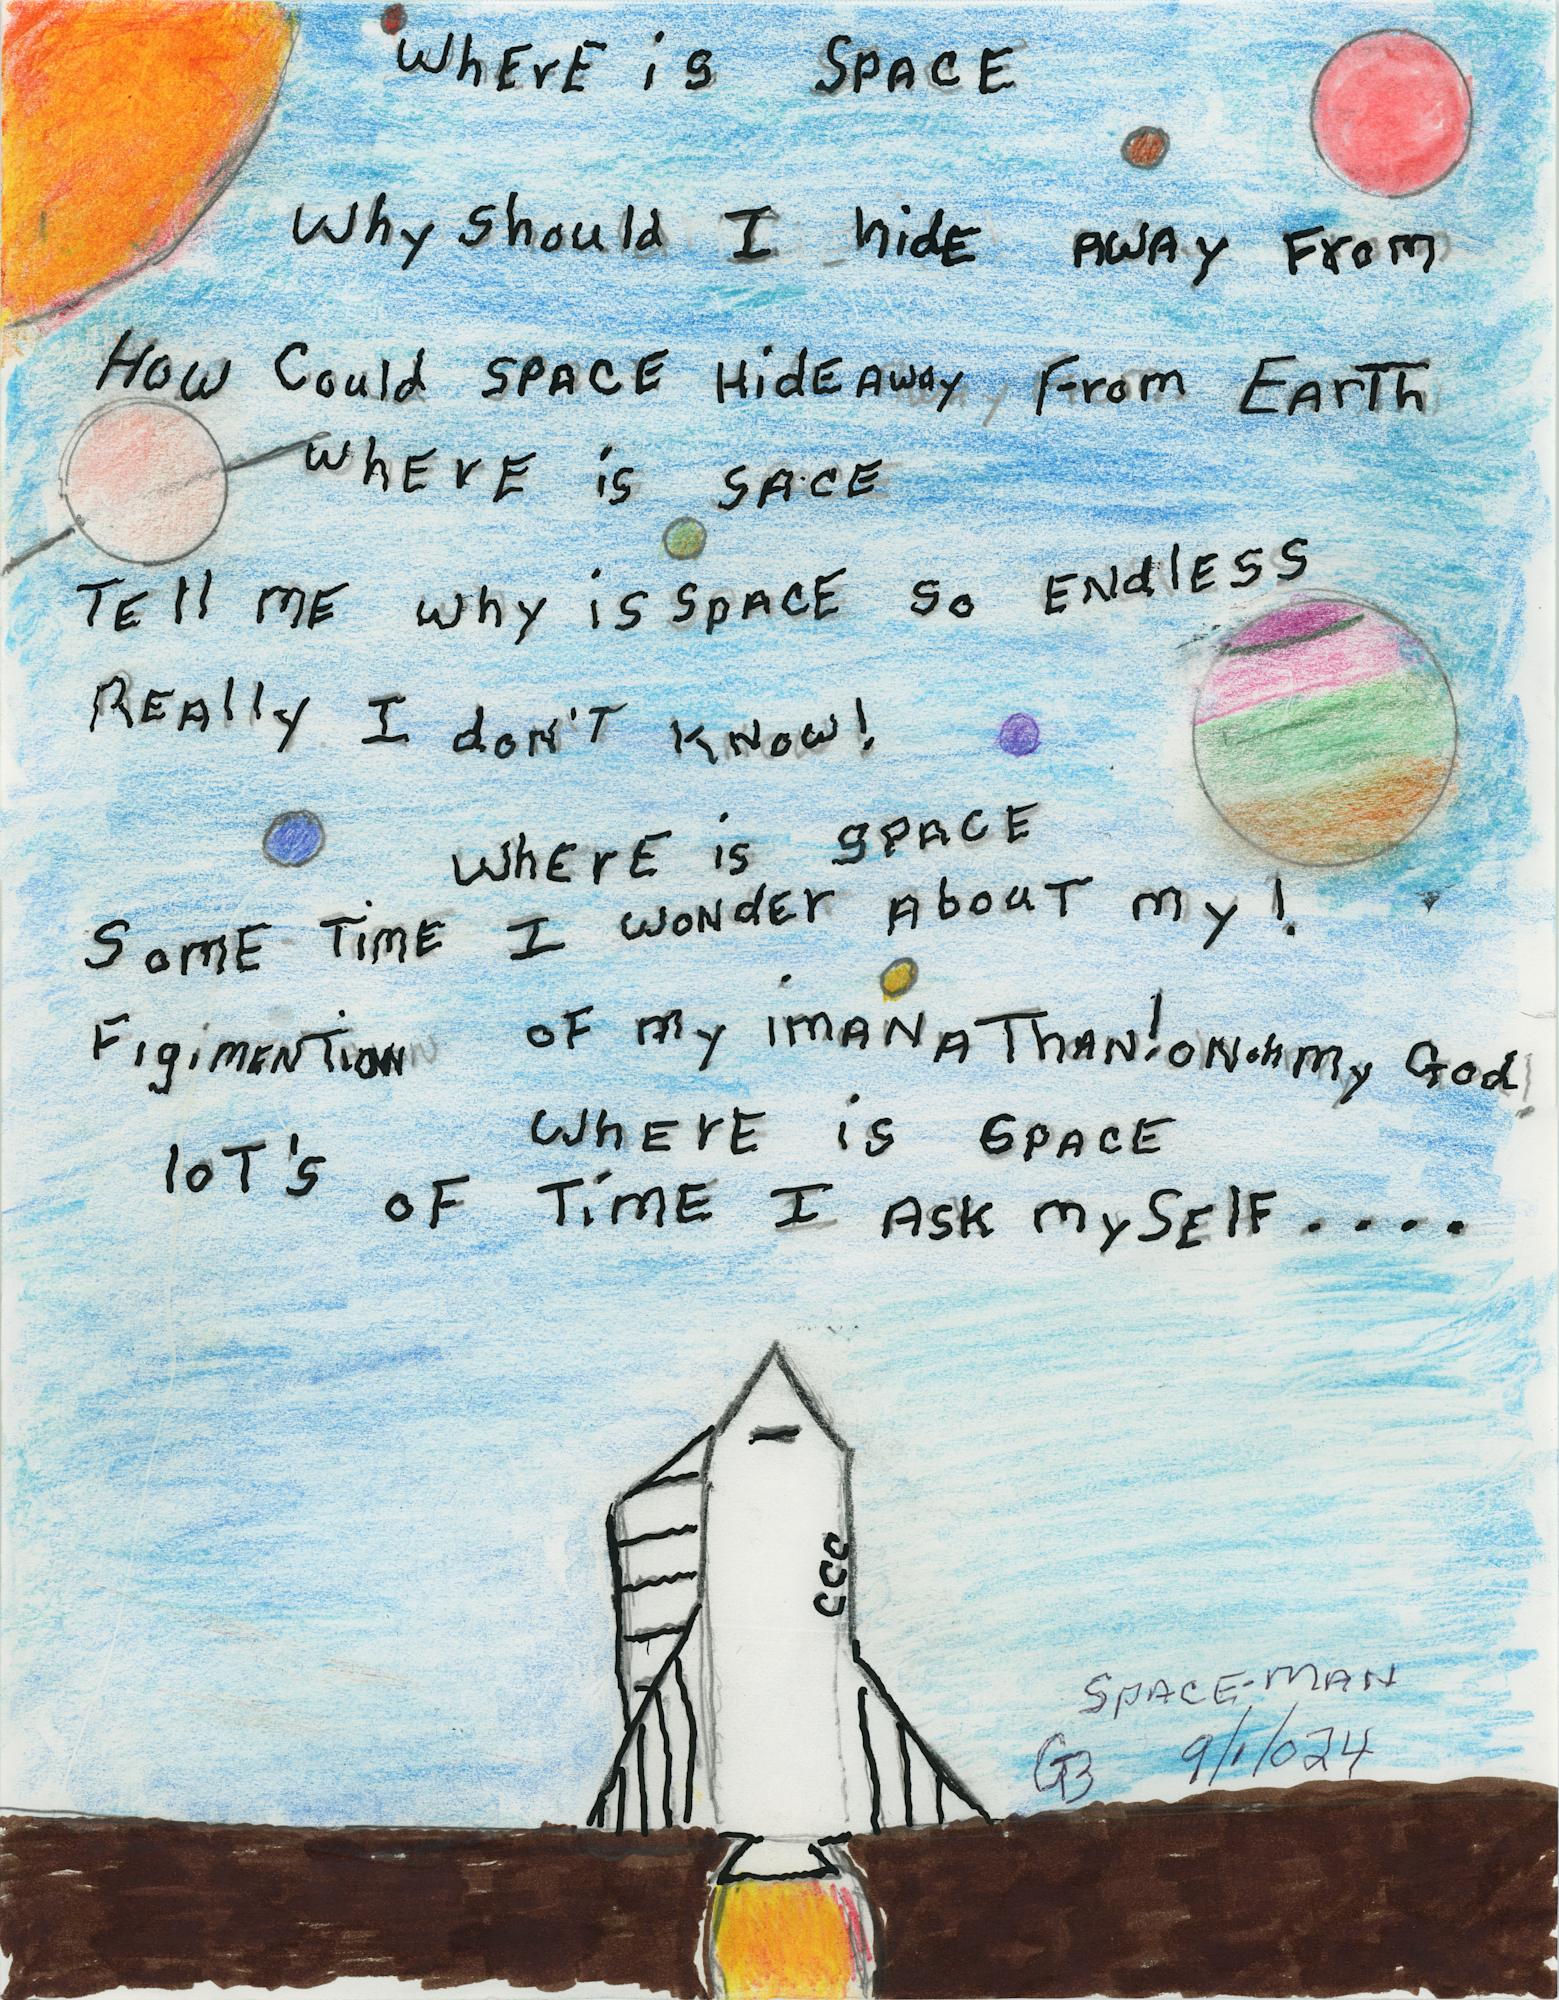 WhErE is SPACE
Why should I hidE AWAy From
How Could SPACE HidEAWAy From EArTh
WhErE is SACE
TEll ME why is SpACE so ENdlESS
REAlly I doN'T KNow!
WhErE is SPACE
SomE TimE I woNdEr About my!
FigimENTioN oF my imANAThAN! oN.h my God!
WhErE is SPACE
loT's oF TimE I Ask mySElF....
CCC
SpACE-MAN
GB 9/1/024